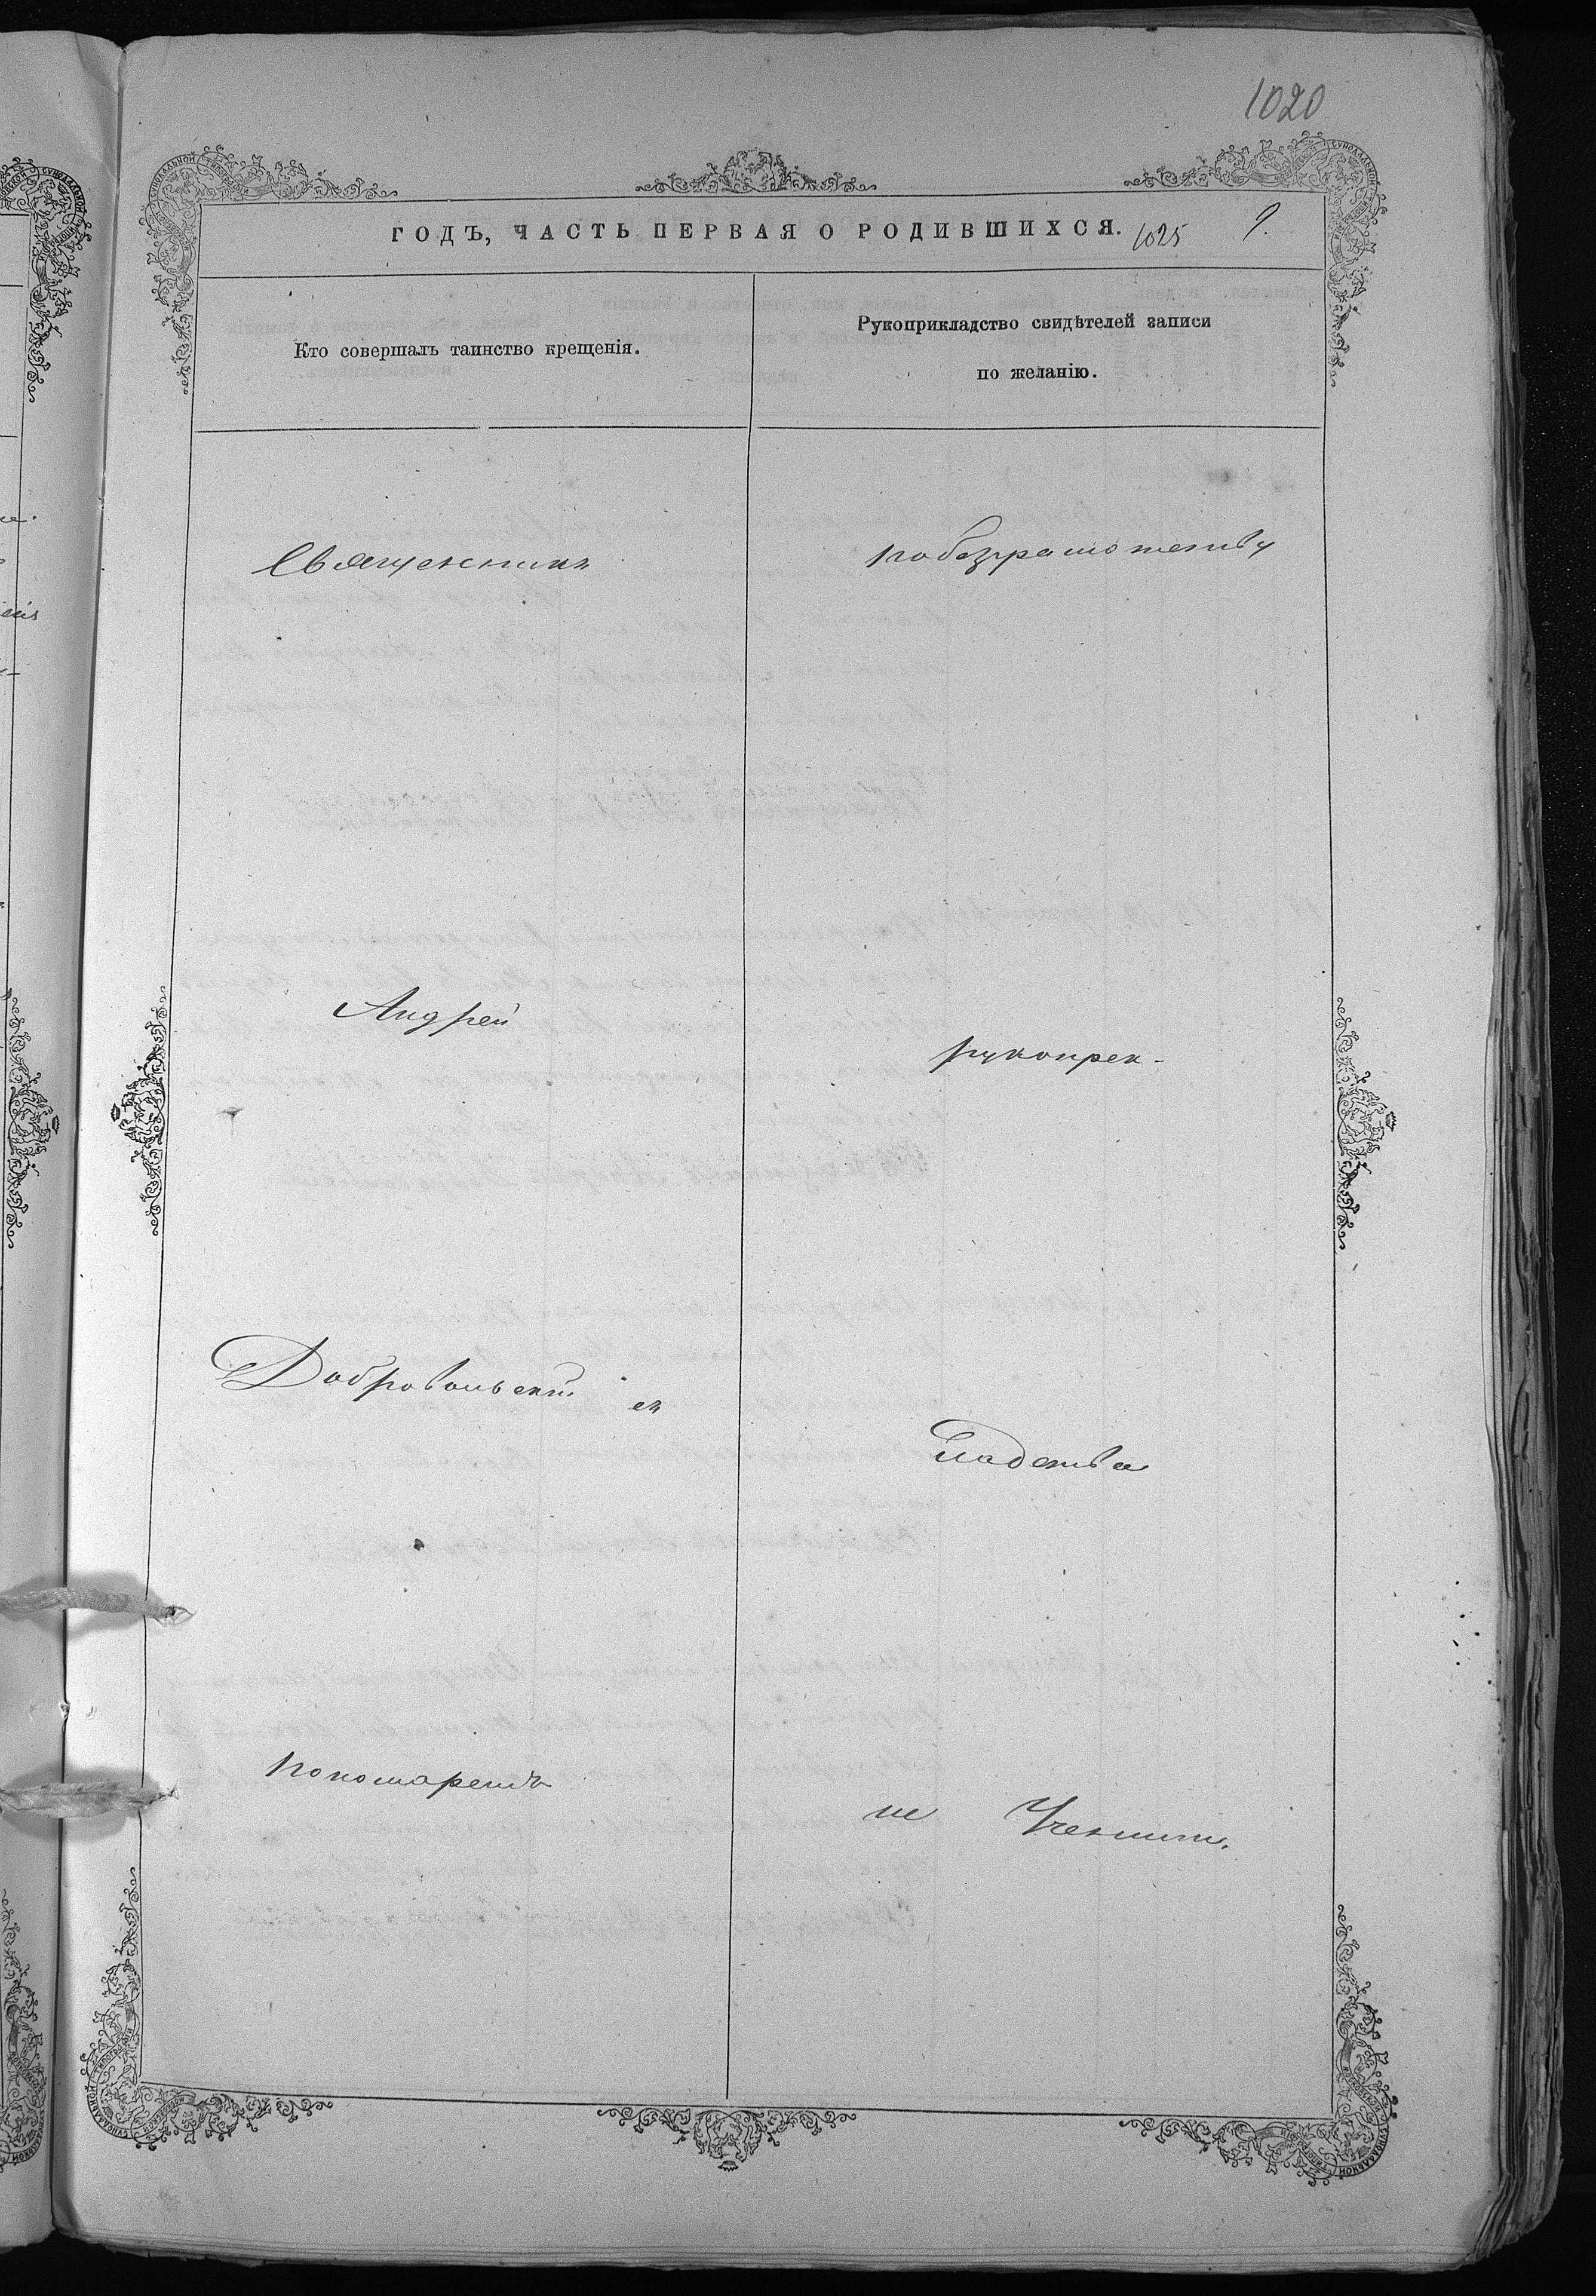 1020
ГОДЪ, ЧАСТЬ ПЕРВАЯ О РОДИВШИХСЯ. 1025 9.
Кто совершалъ таинство крещенія.
Рукоприкладство свидѣтелей записи
по желанію.
Священникъ
Андрей
Добровольскій съ
пономаремъ
по безграмотству
рукопрек-
ладства
не Учениіи.